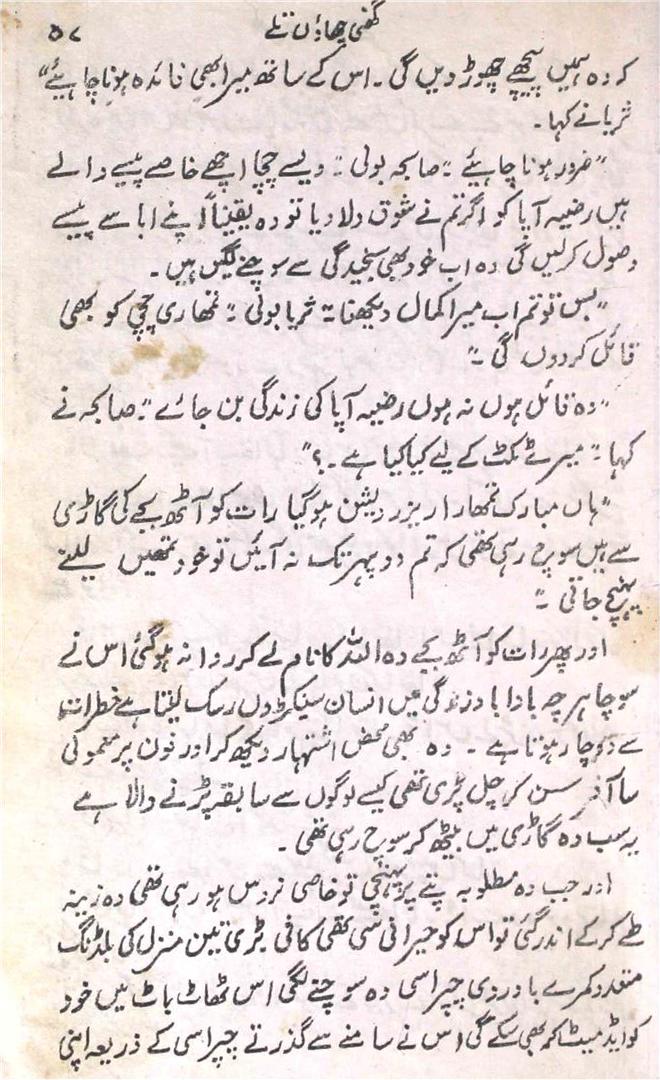 گھنی چھاؤں تلے
۵۷
کہ وہ ہمیں پیچھے چھوڑ دیں گی۔ اس کے ساتھ میرا بھی فائدہ ہونا چاہیئے“
ثریا نے کہا۔
”ضرور ہونا چاہیئے“۔ صاحبہ بولی“۔ ویسے چچا اچھے خاصے پیسے والے
ہیں رضیہ آپا کو اگر تم نے شوق دلا دیا تو وہ یقیناً اپنے ابا سے پیسے
وصول کرلیں گی وہ اب خود بھی سنجیدگی سے سوچنے لگیں ہیں۔
”بس تو تم اب میرا کمال دیکھنا“۔ ثریا بولی“۔ تمھاری چچی کو بھی
قائل کردوں گی“۔
”وہ قائل ہوں نہ ہوں رضیہ آپا کی زندگی بن جائے“۔ صاحبہ نے
کہا“۔ میرے ٹکٹ کے لیے کیا کیا ہے۔؟“
”ہاں مبارک تمھارا ریزرویشن ہوگیا رات کو آٹھ بجے کی گاڑی
سے میں سوچ رہی تھی کہ تم دوپہر تک نہ آئیں تو خود تمھیں لینے
پہنچ جاتی“۔
اور پھر رات کو آٹھ بجے وہ اللہ کا نام لے کر روانہ ہوگئی اس نے
سوچا ہر چہ بادا باد زندگی میں انسان سینکڑوں رسک لیتا ہے خطرات
سے دوچار ہوتا ہے۔ وہ بھی محض اشتہار دیکھ کر اور فون پر معمولی
سا آفر سن کر چل پڑی تھی کیسے لوگوں سے سابقہ پڑنے والا ہے
یہ سب وہ گاڑی میں بیٹھ کر سوچ رہی تھی۔
اور جب وہ مطلوبہ پتے پر پہنچی تو خاصی نروس ہو رہی تھی وہ زینہ
طے کرکے اندر گئی تو اس کو حیرانی سی تھی کافی بڑی تین منزل کی بلڈنگ
متعدد کمرے باوردی چپراسی وہ سوچنے لگی اس ٹھاٹ باٹ میں خود
کو ایڈمیٹ کر بھی سکے گی اس نے سامنے سے گذرتے چپراسی کے ذریعہ اپنی